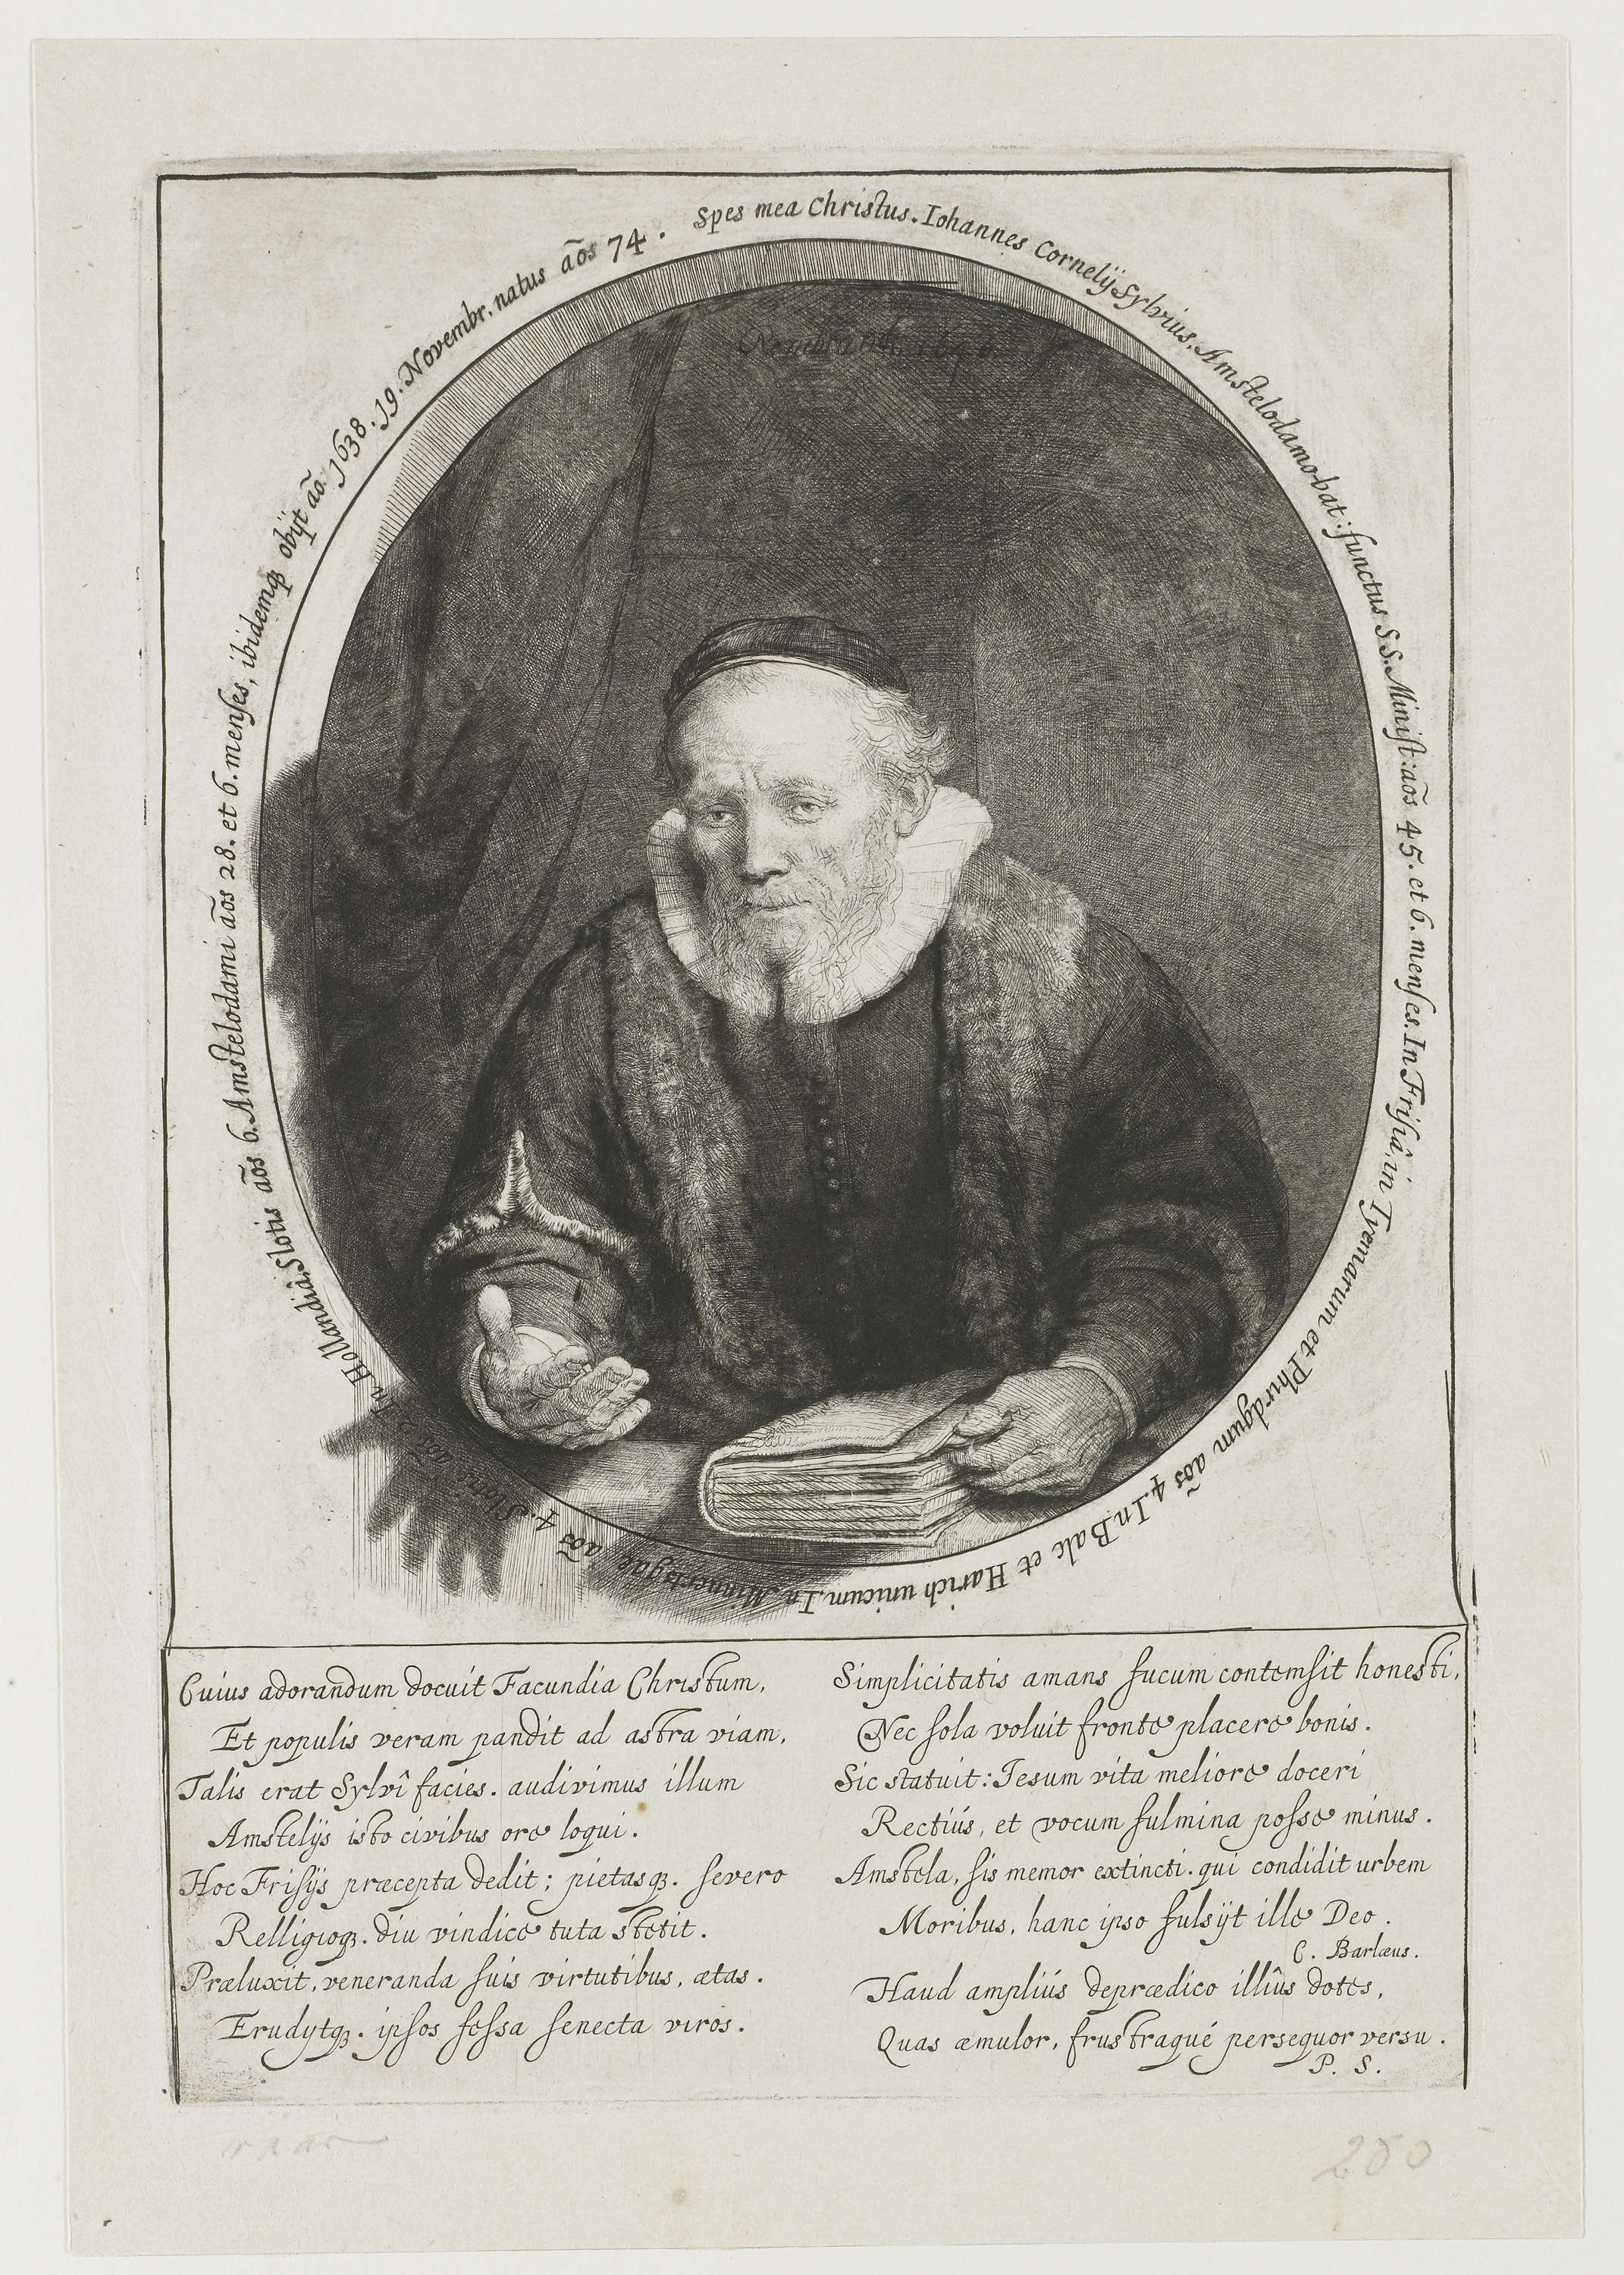 Spes mea Christus. Iohannes Cornelij Sylvius, Amstelodamo-bat: functus S S. Minist: aõs 45. et 6. menses. In Frisiâ, in Tyemarum et Phirdgum aõs 4. In Balc et Harich unicum. In Minnertsgae aõs 4. Slotis aõs 2. In Hollandiâ, Slotis aõs 6. Amstelodami aõs 28. et 6. menses, ibidemqꝫ obijt aõ. 1638. 19. Novembr. natus aõs 74.
Rembrandt 1646
Cuius adorandum docuit Facundia Christum,
Et populis veram pandit ad astra viam,
Talis erat Sylvî facies. audivimus illum
Amstelijs isto civibus ore loqui.
Hoc Frisijs præcepta dedit; pietasqꝫ. severo
Relligioqꝫ. diu vindice tuta stetit.
Præluxit, veneranda suis virtutibus, ætas.
Erudytqꝫ. ipsos fessa senecta viros.
Simplicitatis amans fucum contemsit honesti,
Nec sola voluit fronte placere bonis.
Sic statuit: Iesum vita meliore doceri
Rectiús, et vocum fulmina posse minus.
Amstela, sis memor extincti. qui condidit urbem
Moribus, hanc ipso fulsijt ille Deo.
C. Barlæus.
Haud ampliús deprædico illîus dotes,
Quas æmulor, frustraqué persequor versu.
P. S.
250